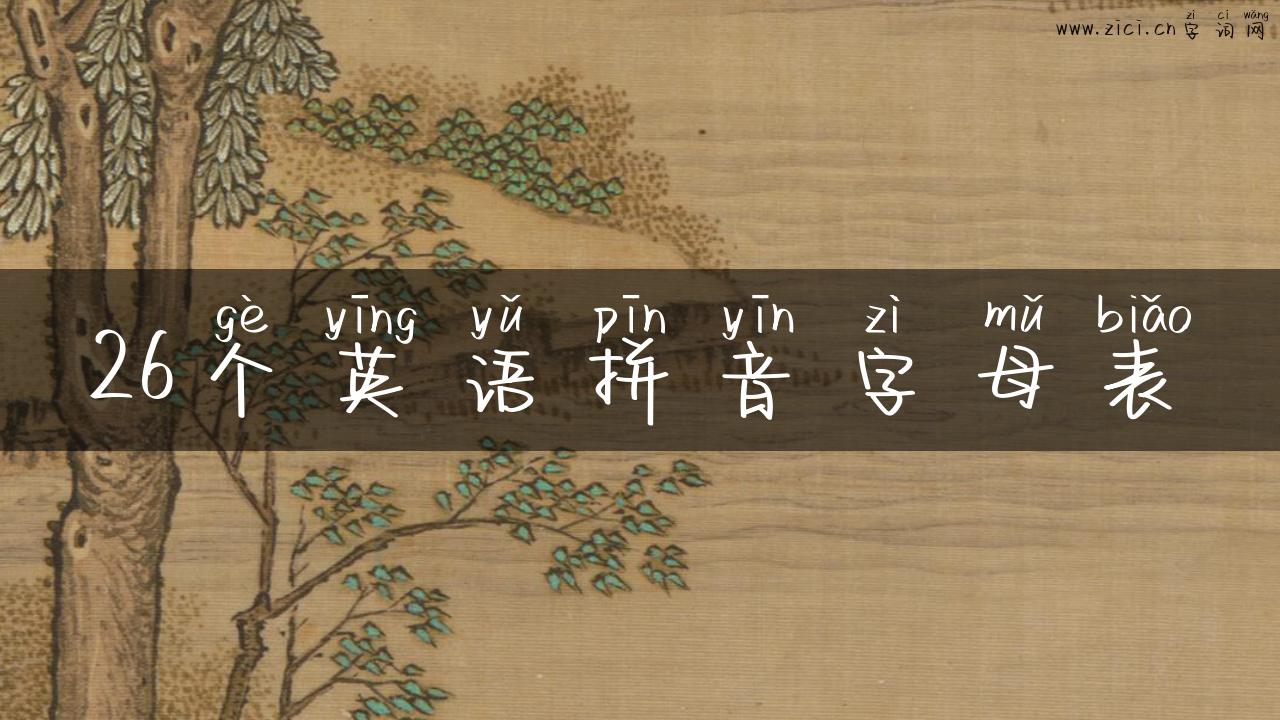 zì cí wǎng
www.zici.cn 字词网
gè yīng yǔ pīn yīn zì mǔ biǎo
26个英语拼音字母表